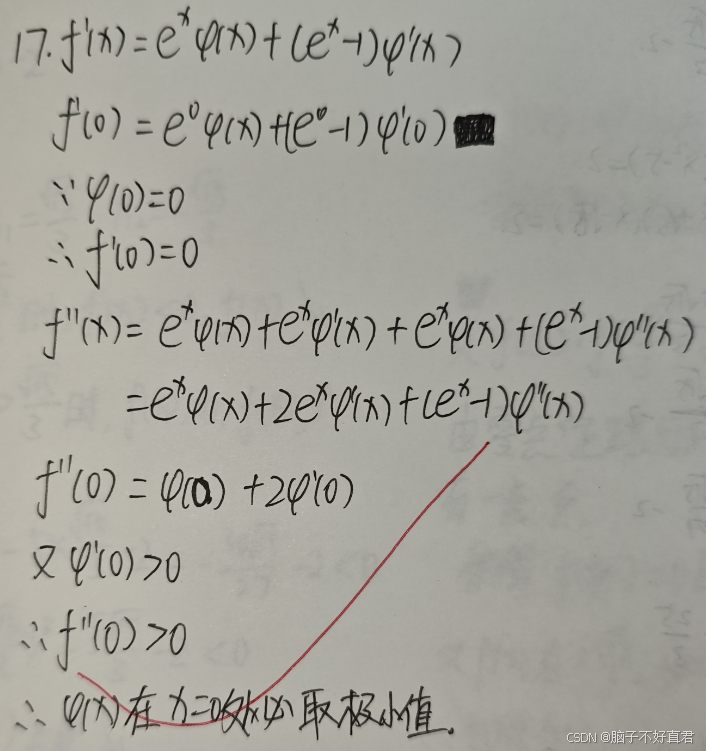 17. f'(x)=e^x φ(x)+(e^x-1)φ'(x)
f'(0)=e^0 φ(x)+(e^0-1)φ'(0)
∵ φ(0)=0
∴ f'(0)=0
f''(x)= e^x φ(x)+e^x φ'(x)+e^x φ(x)+(e^x-1)φ''(x)
=e^x φ(x)+2e^x φ'(x)+(e^x-1)φ''(x)
f''(0)=φ(0)+2φ'(0)
又 φ'(0)>0
∴ f''(0)>0
∴ φ(x)在x=0 取极小值.
CSDN @脑子不好直君